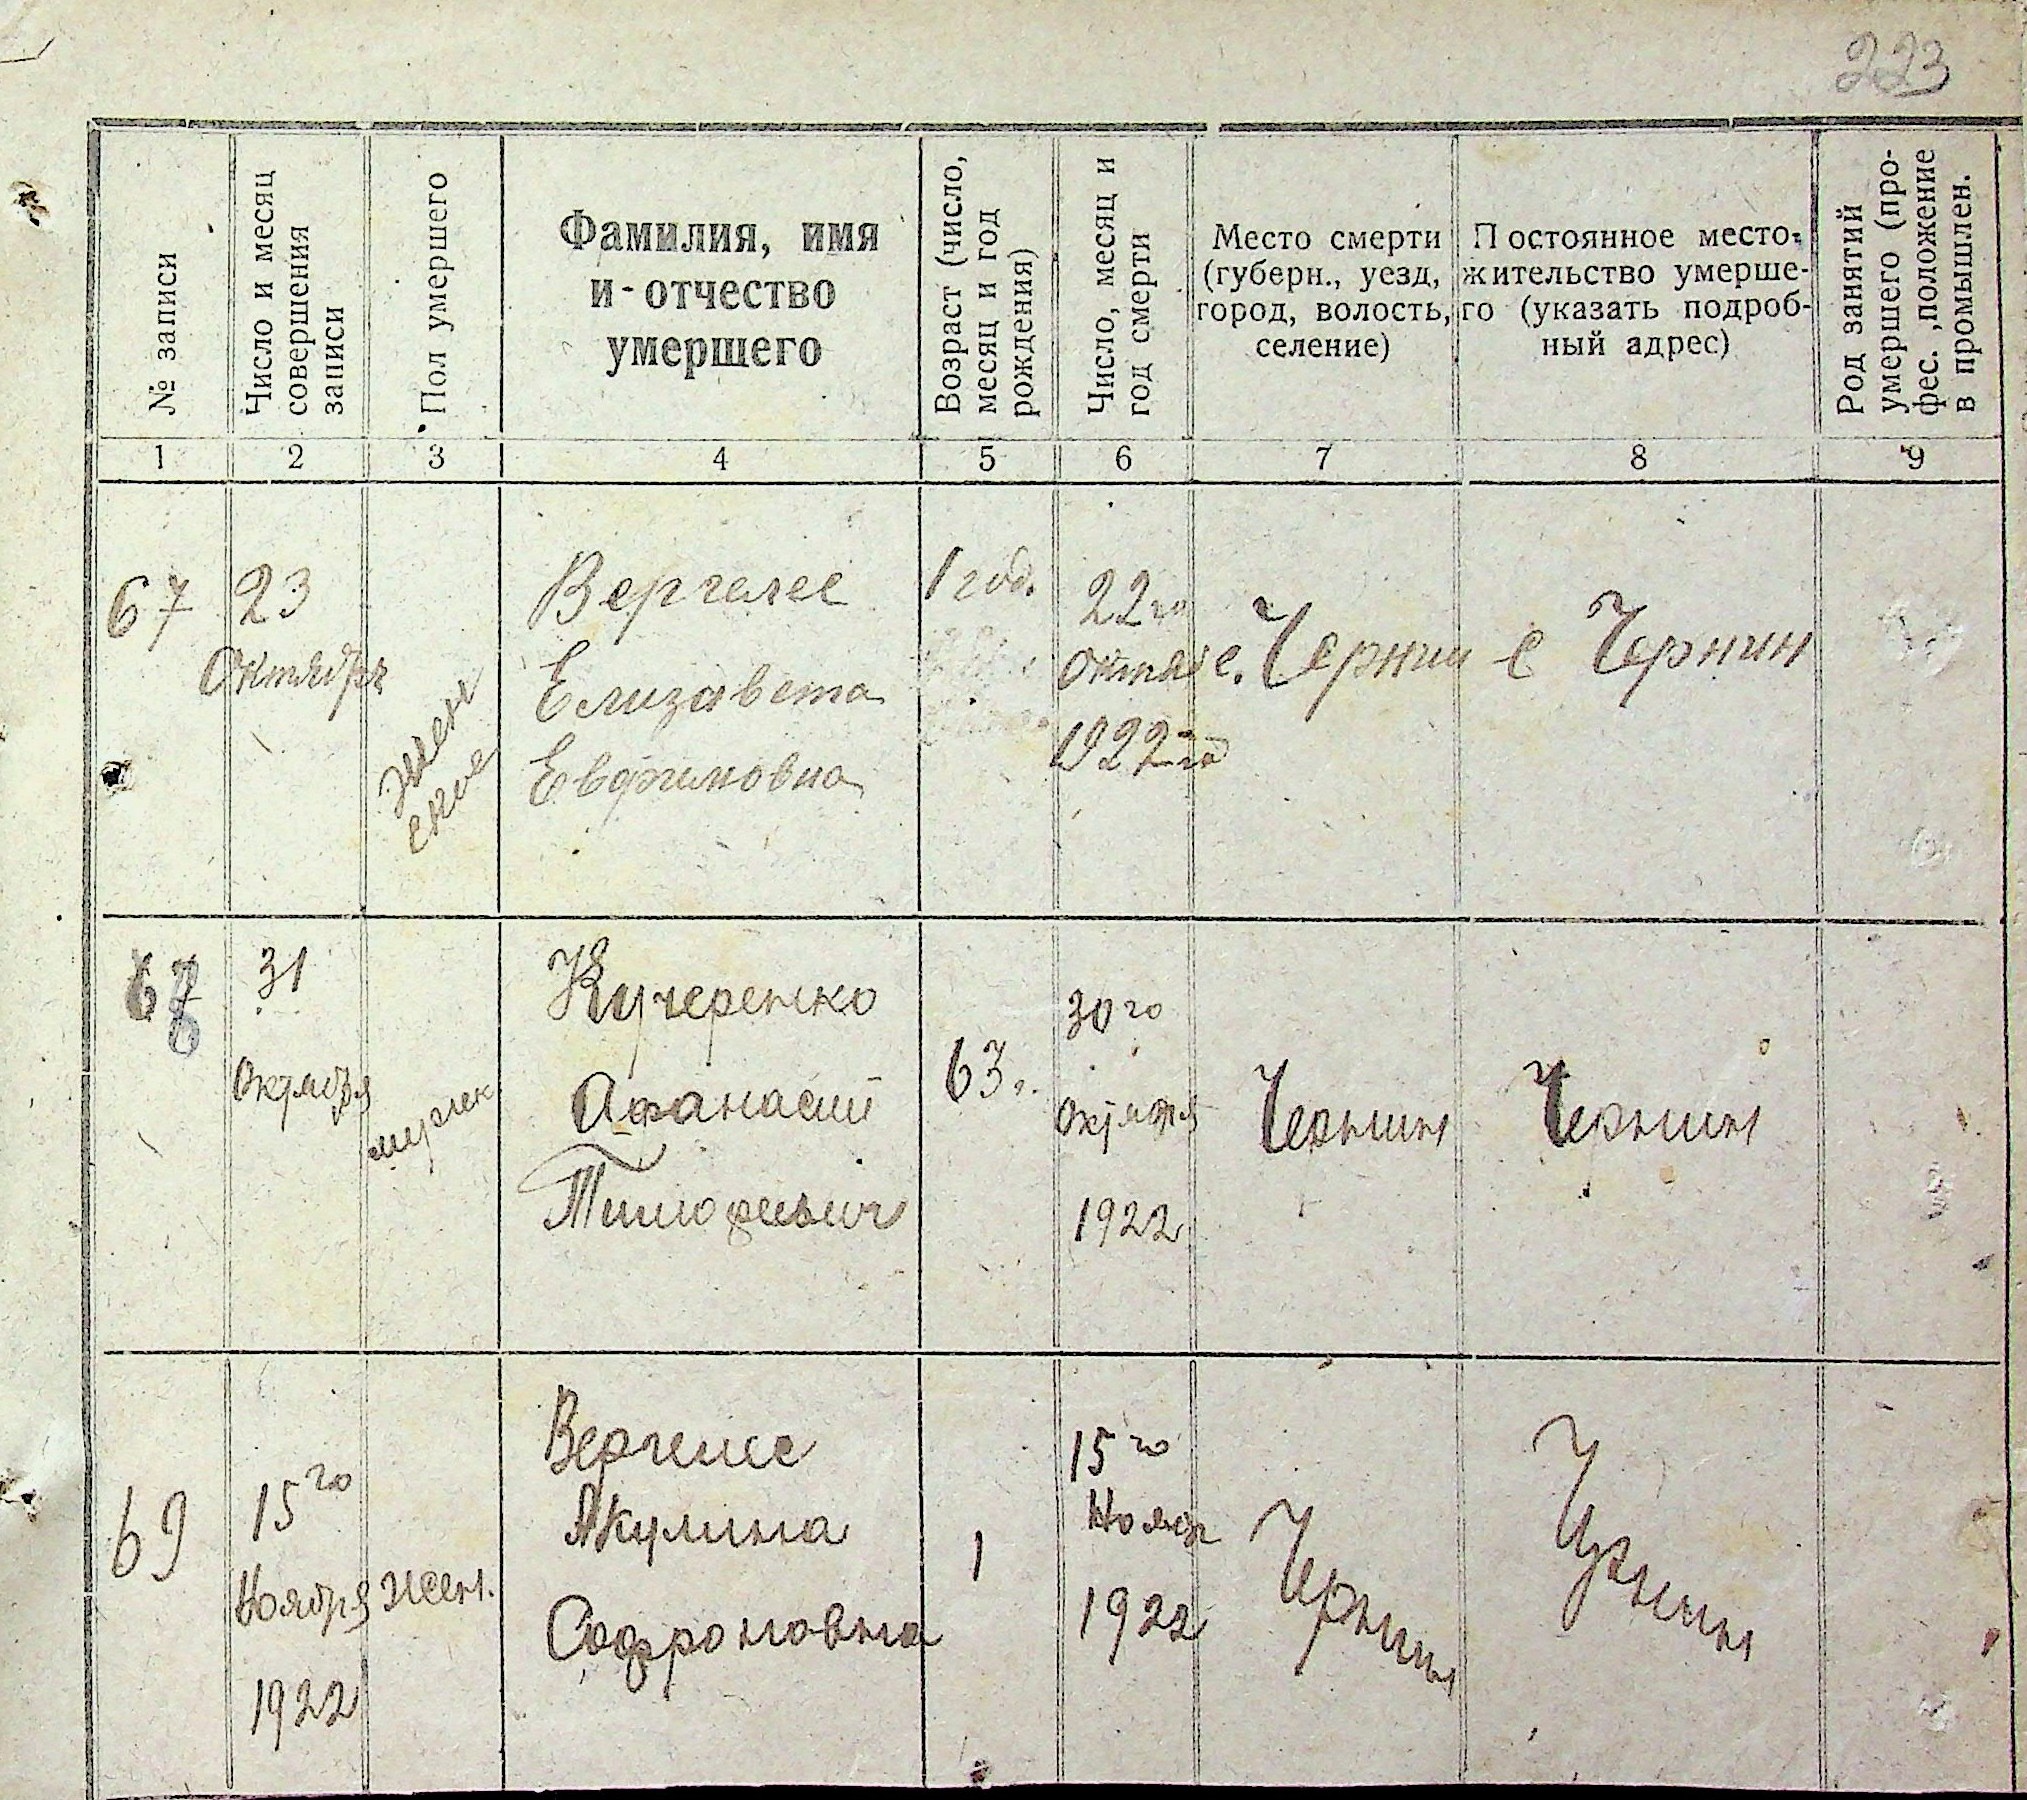 223
№ записи
Число и месяц
совершения
записи
Пол умершего
Фамилия, имя
и-отчество
умершего
Возраст (число,
месяц и год
рождения)
Число, месяц и
год смерти
Место смерти
(губерн., уезд,
город, волость,
селение)
Постоянное место-
жительство умерше-
го (указать подроб-
ный адрес)
Род занятий
умершего (про-
фес., положение
в промышлен.
1 2 3 4 5 6 7 8 9
67
23
Октября
женс
ская
Вергелес
Елизавета
Евфимовна
1 год.
22го
октяб
1922го
с. Чернин
с Чернин
68
31
Октября
мужск
Кучеренко
Афанасий
Тимофеевич
63 г.
30го
Октября
1922
Чернин
Чернин
69
15го
Ноября
1922
жен.
Вергелес
Акулина
Софроновна
1
15го
Нояб
1922
Чернин
Чернин